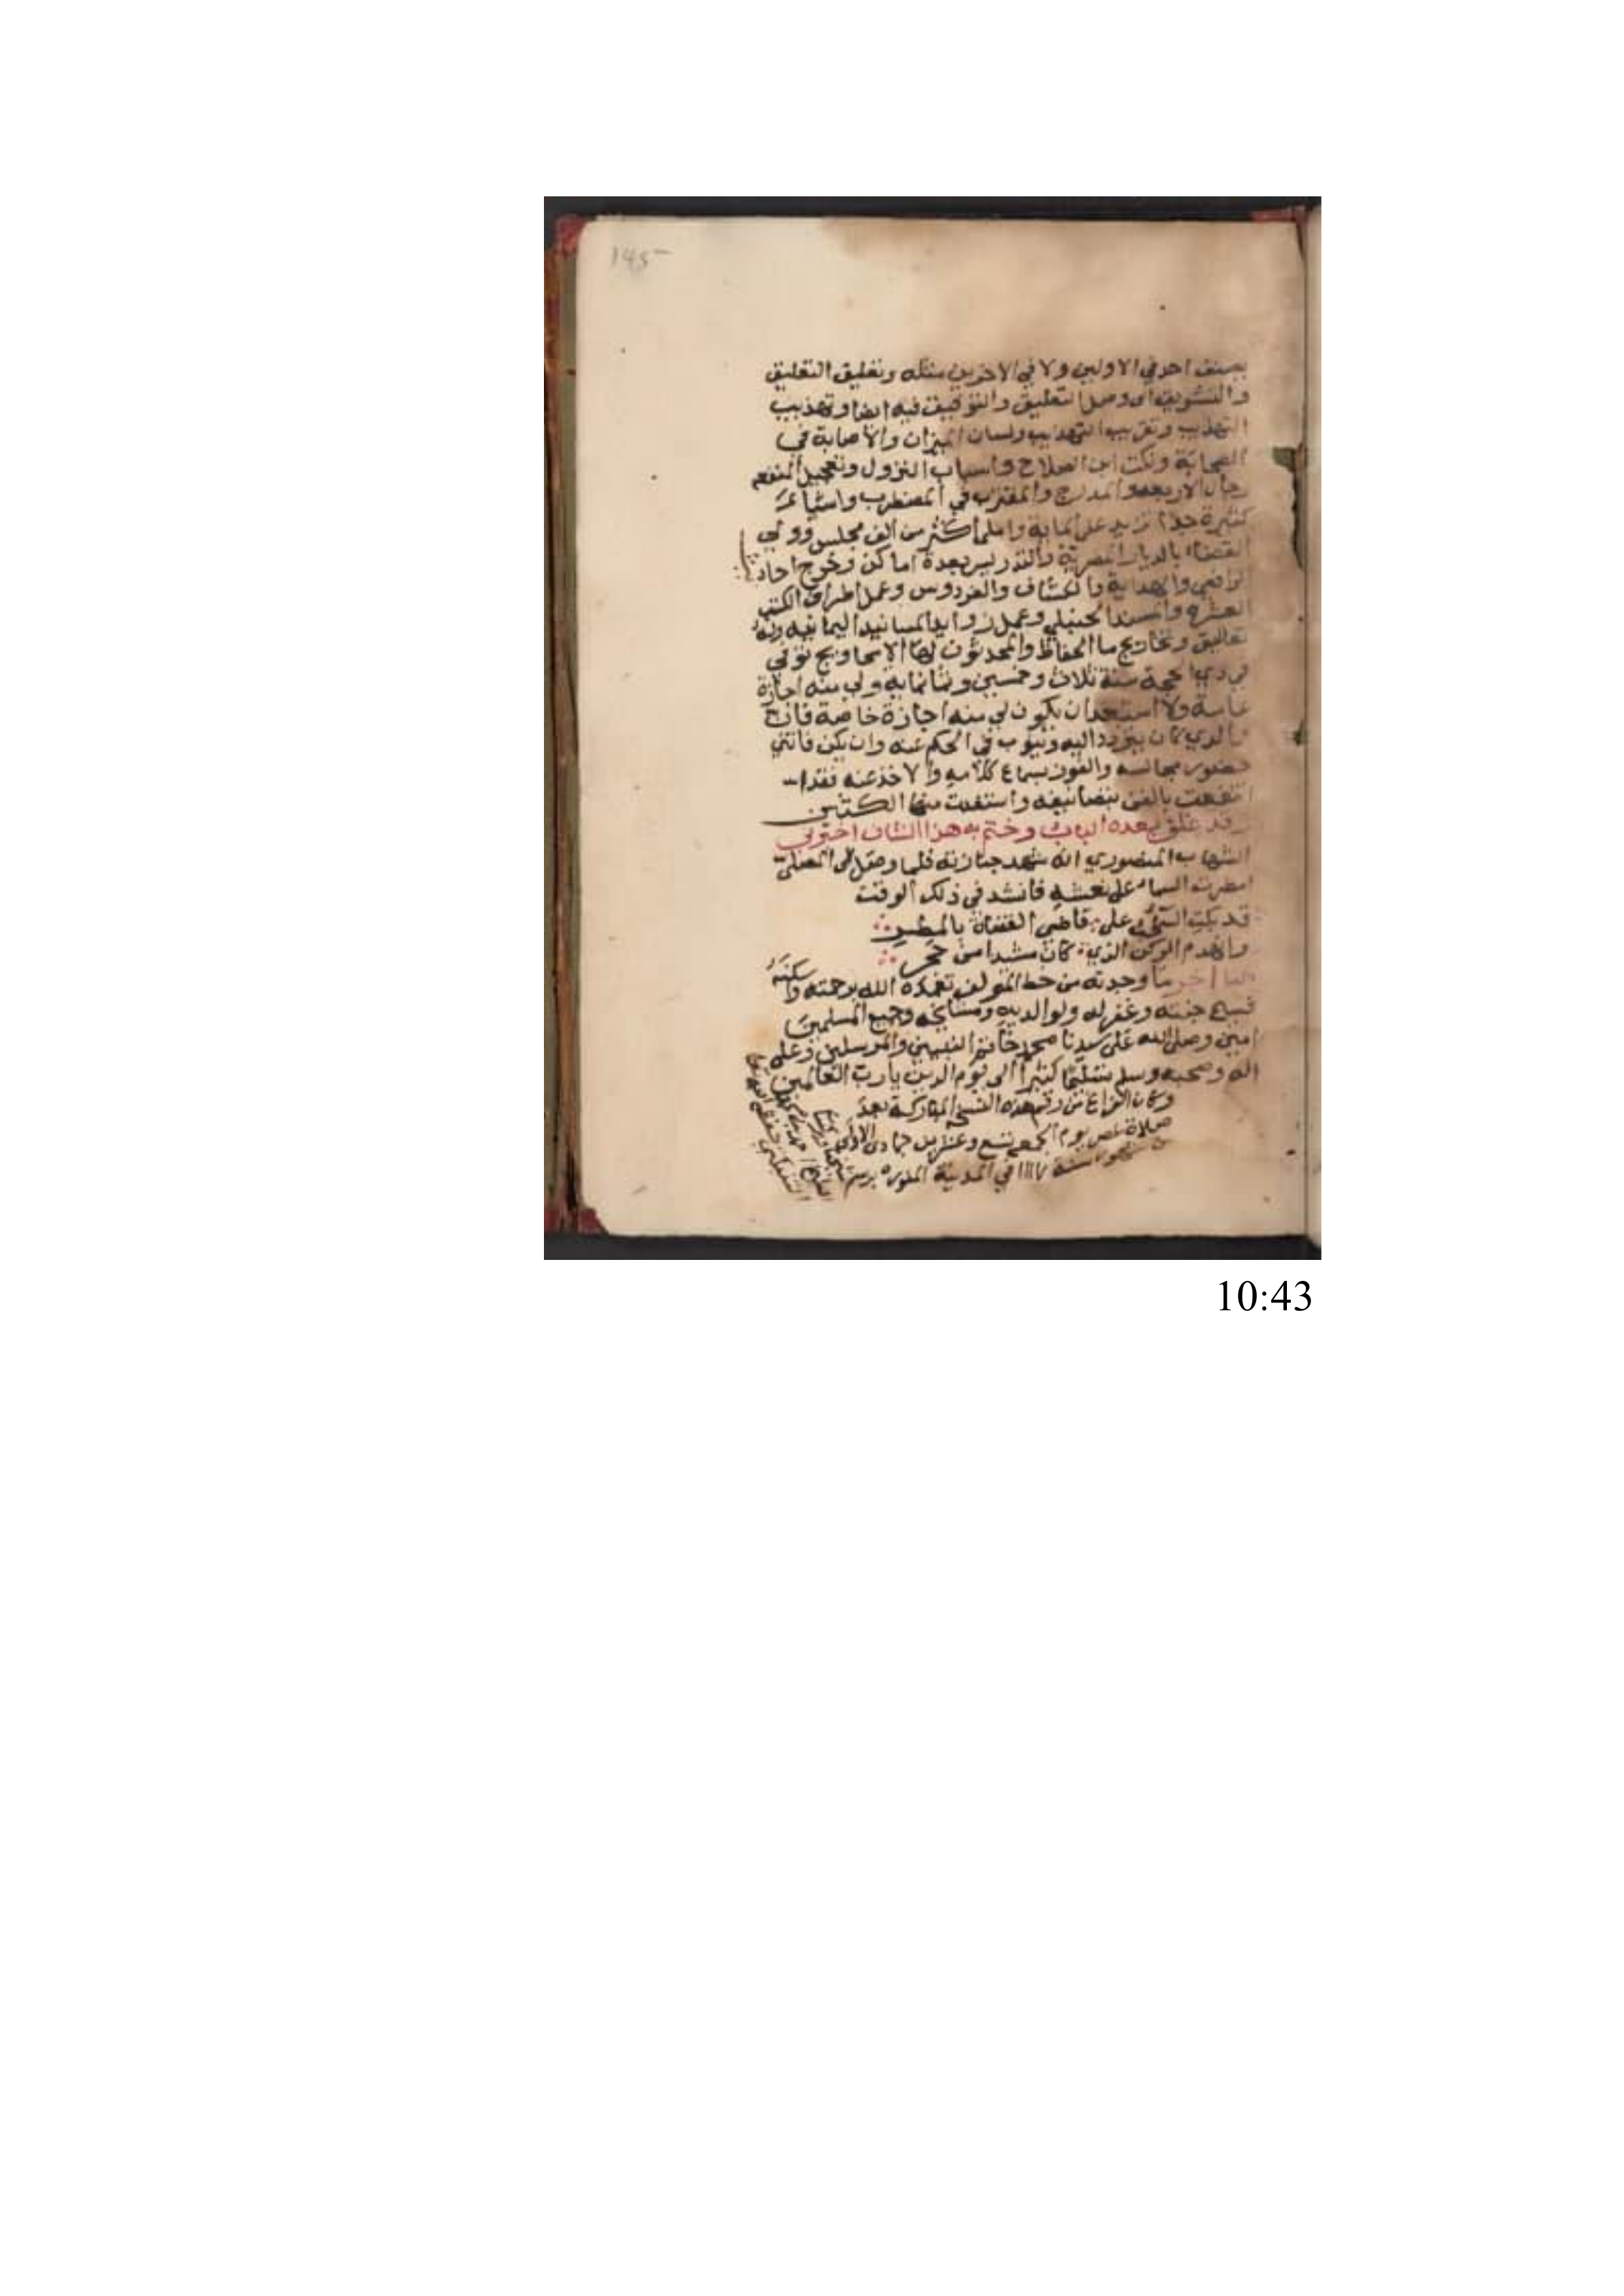 145
يصنف احد في الاولين ولا في الاخرين مثله وتغليق التعليق
والتشويق الى وصل التعليق والتوفيق فيه ايضا وتهذيب
التهذيب وتقريب التهذيب ولسان الميزان والاصابة في
الصحابة ونكت ابن الصلاح واسباب النزول وتعجيل المنفعه
رجال الاربعه والمدرج والمقترب في المضطرب واشياء
كثيرة جدا تزيد على المايه واملى اكثر من الف مجلس وولي
القضاء بالديار المصرية والتدريس بعدة اماكن وخرج احاديث
الرافعي والهداية والكشاف والفردوس وعمل اطراف الكتب
العشره والمسند الحنبلي وعمل زوايد المسانيد الثمانيه وله
تعاليق وتخاريج ما الحفاظ والمحدثون لها الا محاويج توفي
في ذي الحجة سنة ثلاث وخمسين وثمانمايه ولي منه اجازة
عامة ولا استبعد ان يكون لي منه اجازة خاصة فان
والدي كان يتردد اليه وينوب في الحكم عنه وان يكن فاتني
حضور مجالسه والفوز بسماع كلامه والاخذ عنه فقد
انتفعت بالفن بتصانيفه واستفدت منها الكثير
وقد غلق بعده الباب وختم به هذا الشان اخبرني
الشهاب المنصوري انه شهد جنازته فلما وصل الى المصلى
امطرت السماء على نعشه فانشد في ذلك الوقت
قد بكت السحب على قاضي القضاة بالمطر
وانهدم الركن الذي كان مشيدا من حجر
اخر ما وجدته من خط المولف تغمده الله برحمته واسكنه
فسيح جنته وغفر له ولوالديه ومشايخه وجميع المسلمين
امين وصلى الله على سيدنا محمد خاتم النبيين والمرسلين وعلى
اله وصحبه وسلم تسليما كثيرا الى يوم الدين يا رب العالمين
وكان الفراغ من رقم هذه النسخه المباركه بعد
صلاة عصر يوم الجمعه تسع وعشرين جمادى الاولى
من شهور سنة في المدينة المنوره برسم
10:43